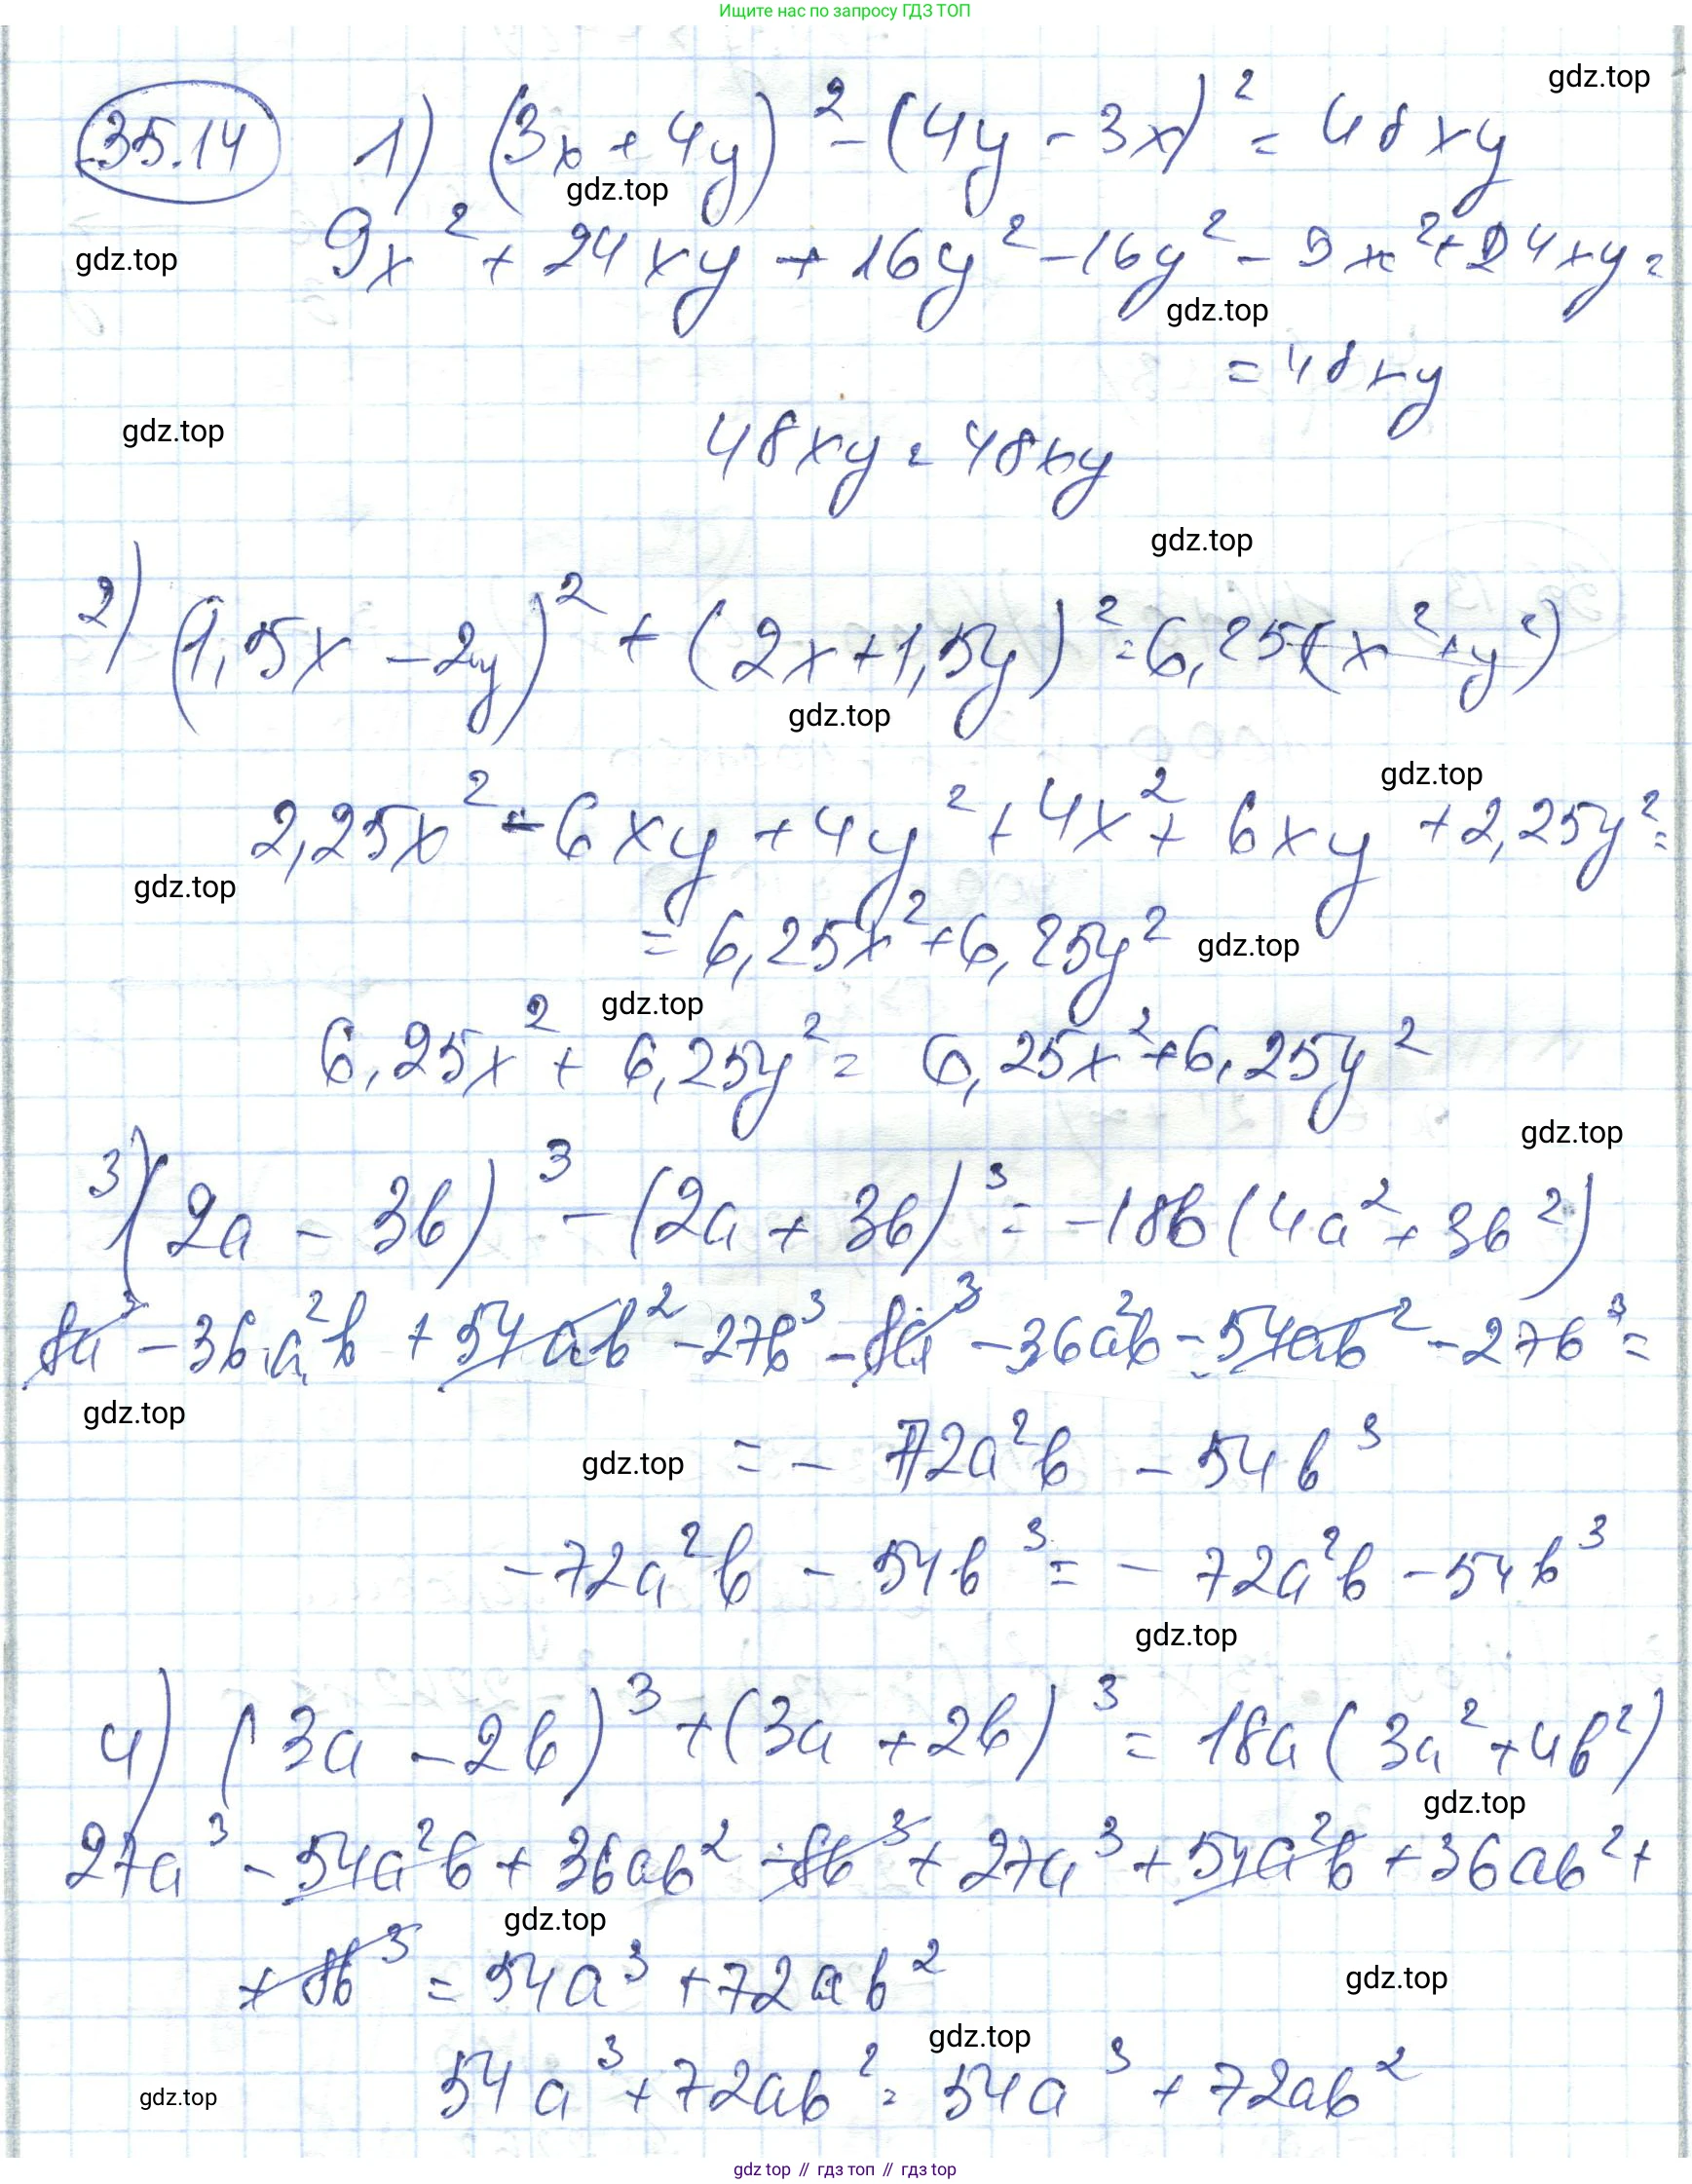 Ищите нас по запросу ГДЗ ТОП
gdz.top
35.14 1) (3x + 4y)² - (4y - 3x)² = 48xy
gdz.top
9x² + 24xy + 16y² - 16y² - 9x² + 24xy =
gdz.top
gdz.top
= 48xy
gdz.top
48xy = 48xy
gdz.top
2) (1,5x - 2y)² + (2x + 1,5y)² = 6,25(x² + y²)
gdz.top
gdz.top
2,25x² - 6xy + 4y² + 4x² + 6xy + 2,25y² =
gdz.top
= 6,25x² + 6,25y²
gdz.top
gdz.top
6,25x² + 6,25y² = 6,25x² + 6,25y²
gdz.top
3) (2a - 3b)³ - (2a + 3b)³ = -18b(4a² + 3b²)
8a³ - 36a²b + 54ab² - 27b³ - 8a³ - 36a²b - 54ab² - 27b³ =
gdz.top
= - 72a²b - 54b³
gdz.top
-72a²b - 54b³ = - 72a²b - 54b³
gdz.top
4) (3a - 2b)³ + (3a + 2b)³ = 18a(3a² + 4b²)
gdz.top
27a³ - 54a²b + 36ab² - 8b³ + 27a³ + 54a²b + 36ab² +
gdz.top
+ 8b³ = 54a³ + 72ab²
gdz.top
gdz.top
54a³ + 72ab² = 54a³ + 72ab²
gdz.top
gdz top // гдз топ // гдз top